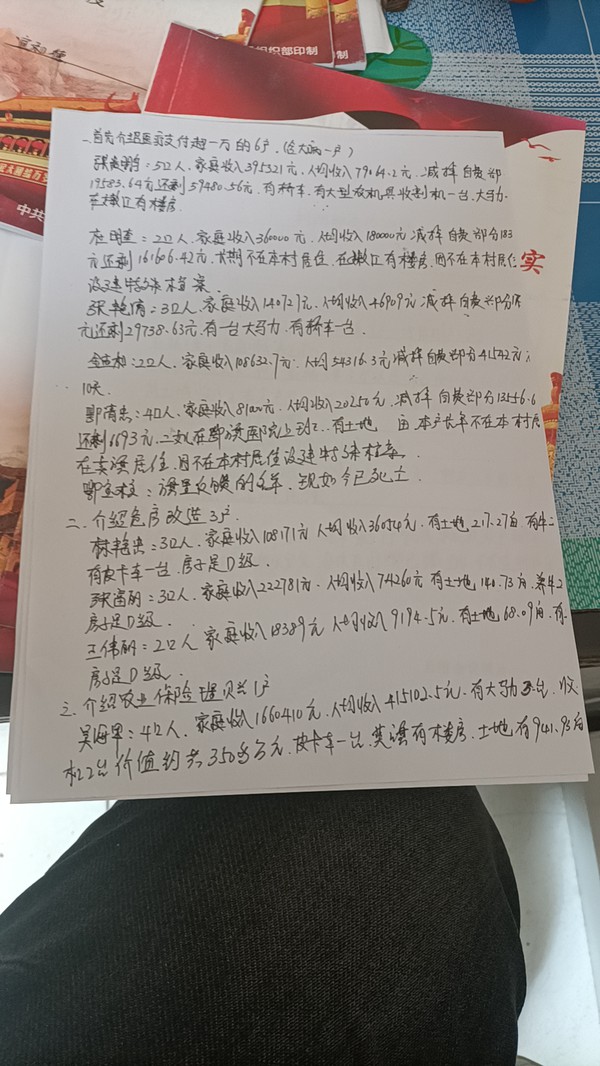 组织部印制
印制
中共
实
一、首先介绍医药支付超一万的6户（含大病一户）
5口人、家庭收入395321元、人均收入79064.2元、减掉自费部
19583.64元还剩59480.56元、有轿车、有大型农机具收割机一台、大马力.
在嫩江有楼房.
2口人、家庭收入360000元、人均收入180000元减掉自费部分183
元还剩161606.42元、长期不在本村居住、在嫩江有楼房、因不在本村居住
没建特殊档案.
张艳清：3口人、家庭收入140727元、人均收入46909元减掉自费部分
元还剩29738.63元、有一台大马力、有轿车一台.
2口人、家庭收入108632.7元、人均54316.3元减掉自费部分41542元
4口人、家庭收入81000元、人均收入20250元、减掉自费部分13556.6
还剩6693元、在医院上班、有土地 由本户长年不在本村居
在居住、因不在本村居住没建特殊档案.
现如今已死亡
二、介绍危房改造3户
3口人、家庭收入108171元人均收入36054元、有土地217.27亩、有牛二
有皮卡车一台、房子是D级.
3口人、家庭收入222781元、人均收入74260元有土地140.73亩、养牛2
房子是D级.
王伟丽：2口人 家庭收入18389元 人均收入9194.5元、有土地68.09亩、有
房子是D级.
三、介绍农业保险理贝兰1户
吴海军：4口人、家庭收入1660410元、人均收入415102.5元、有大马力3台、收
机2台价值约共350多万元、皮卡车一台、有楼房、土地有941.93亩